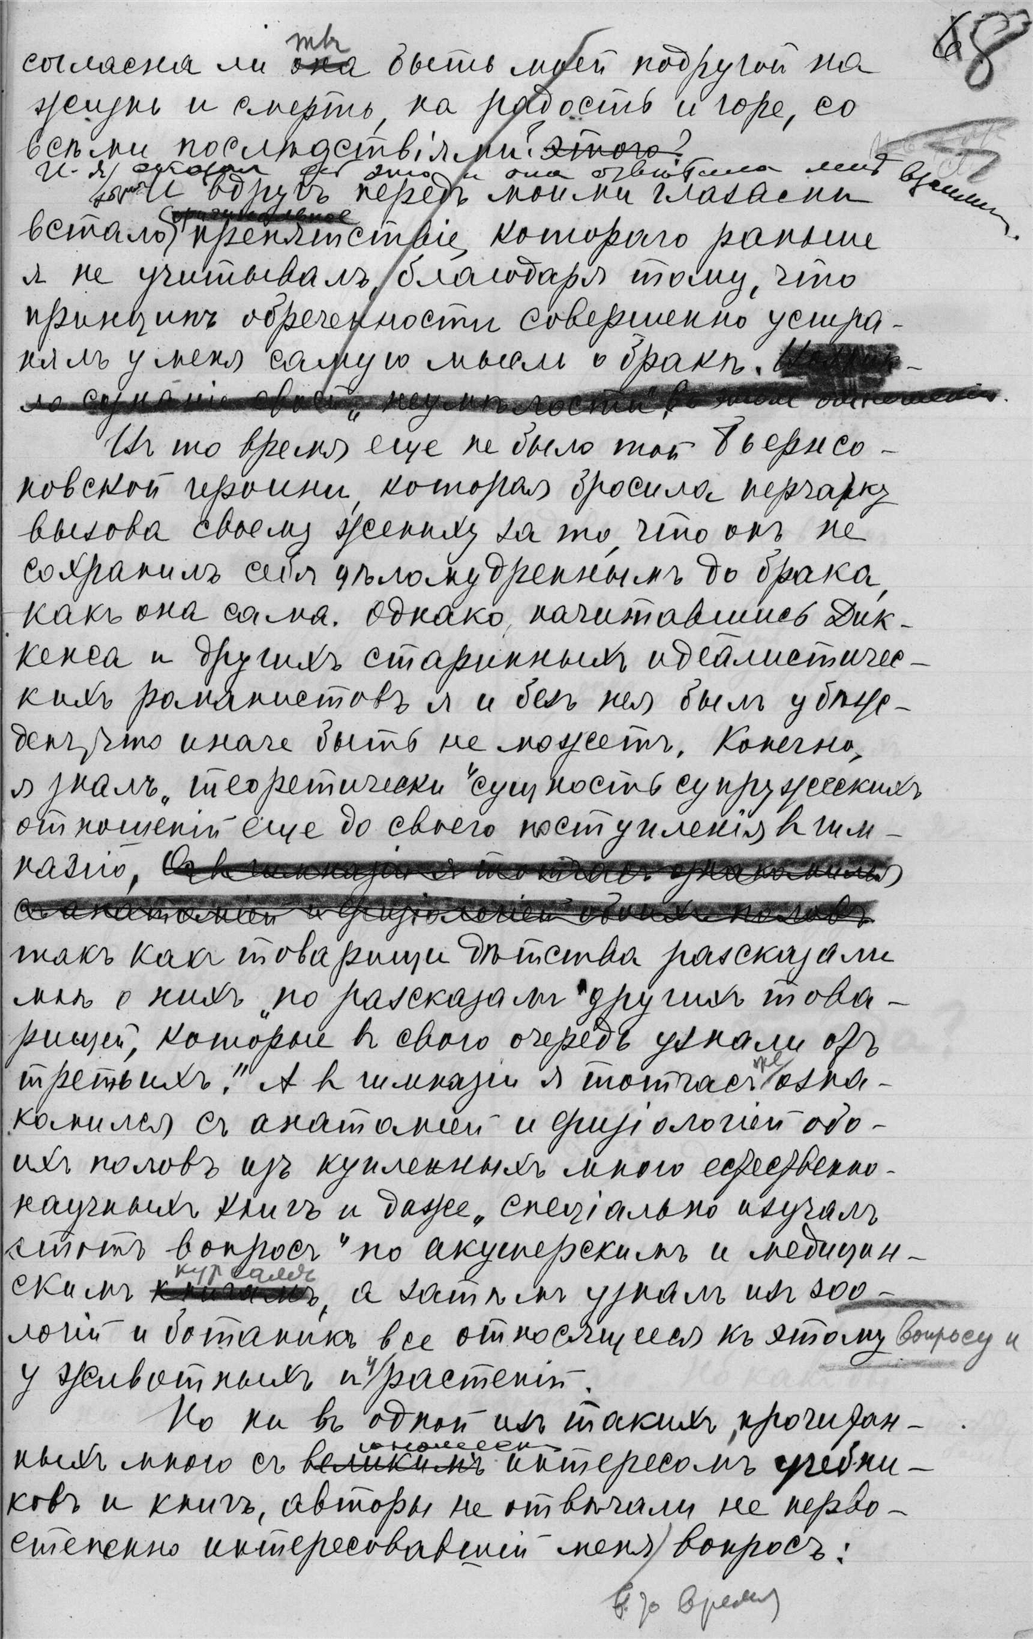 68
ты
согласна ли она быть моей подругой на
жизнь и смерть, на радость и горе, со
всѣми послѣдствіями? этого?
и она отвѣтила мнѣ
И вдругъ передъ моими глазами
встало препятствіе, котораго раньше
я не учитывалъ, благодаря тому, что
принципъ обреченности совершенно устра-
нялъ у меня самую мысль о бракѣ.
Въ то время еще не было той Бьернсо-
новской героини, которая бросила перчатку
вызова своему жениху за то, что онъ не
сохранилъ себя цѣломудреннымъ до брака,
какъ она сама. Однако, начитавшись Дик-
кенса и другихъ старинныхъ идеалистичес-
кихъ романистовъ я и безъ нея былъ убѣж-
денъ, что иначе быть не можетъ. Конечно,
я зналъ „теоретически“ сущность супружескихъ
отношеній еще до своего поступленія въ гим-
назію, А въ гимназіи я тотчасъ ознакомился
съ анатоміей и физіологіей обоихъ половъ
такъ какъ товарищи дѣтства разсказали
мнѣ о нихъ „по разсказамъ другихъ това-
рищей, которые въ свою очередь узнали отъ
третьихъ.“ А въ гимназіи я тотчасъ же озна-
комился съ анатоміей и физіологіей обо-
ихъ половъ изъ купленныхъ мною естественно-
научныхъ книгъ и даже „спеціально изучалъ
этотъ вопросъ“ по акушерскимъ и медицин-
курсамъ
скимъ книгамъ, а затѣмъ узналъ изъ зоо-
логіи и ботаники все относящееся къ этому вопросу и
у животныхъ и у растеній.
Но ни въ одной изъ такихъ, прочитан-
ныхъ мною съ великимъ интересомъ учебни-
ковъ и книгъ, авторы не отвѣчали на перво-
степенно интересовавшій меня вопросъ:
въ то время